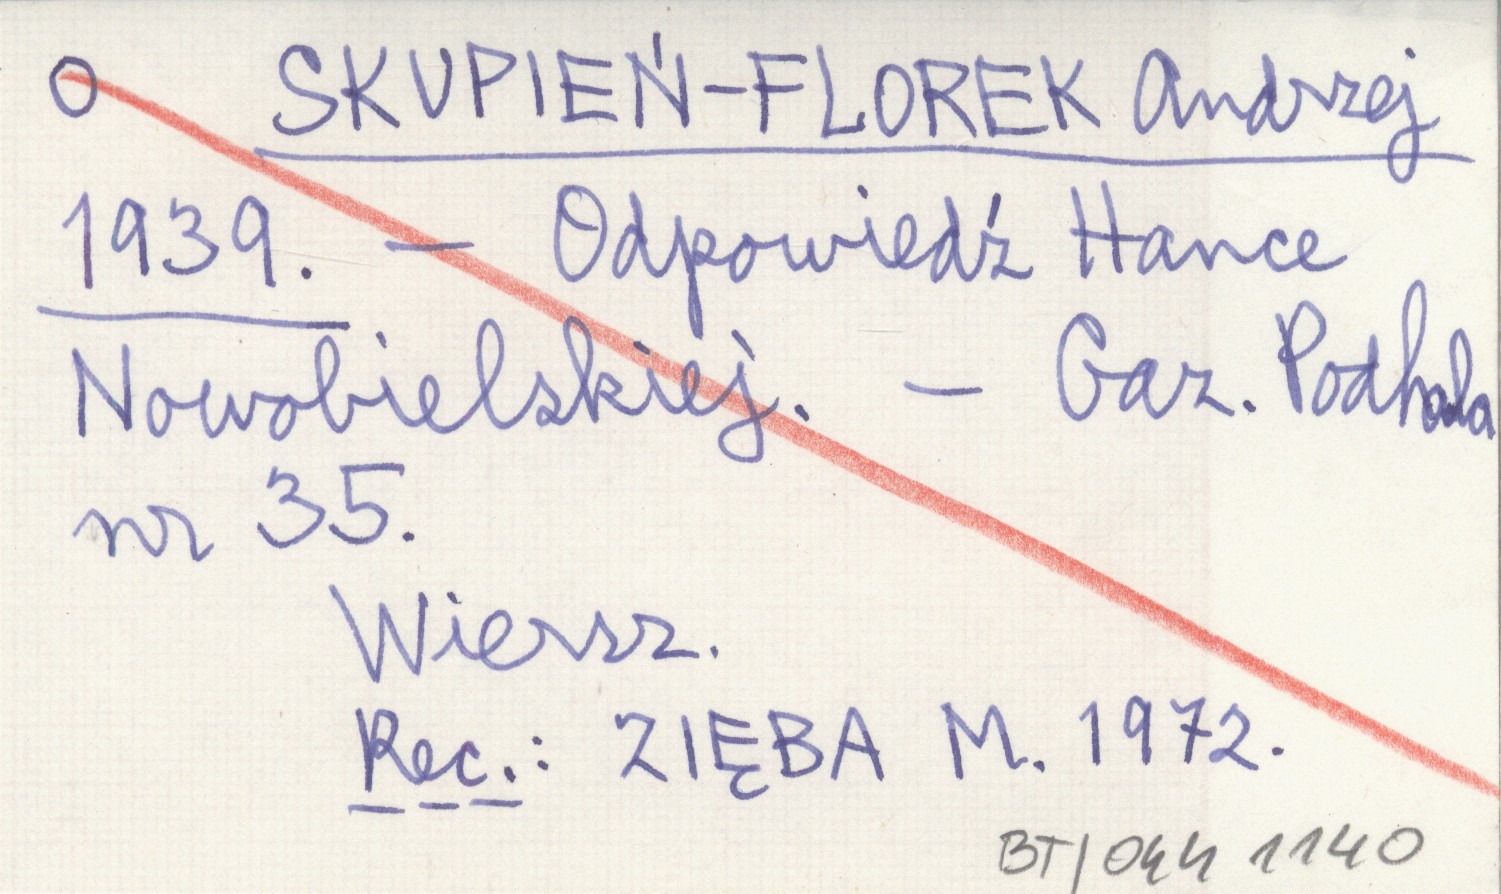 O SKUPIEŃ-FLOREK Andrzej
1939. — Odpowiedź Hance
Nowobielskiej. — Gaz. Podhala
nr 35.
Wiersz.
Rec.: ZIĘBA M. 1972.
BT/044 1140